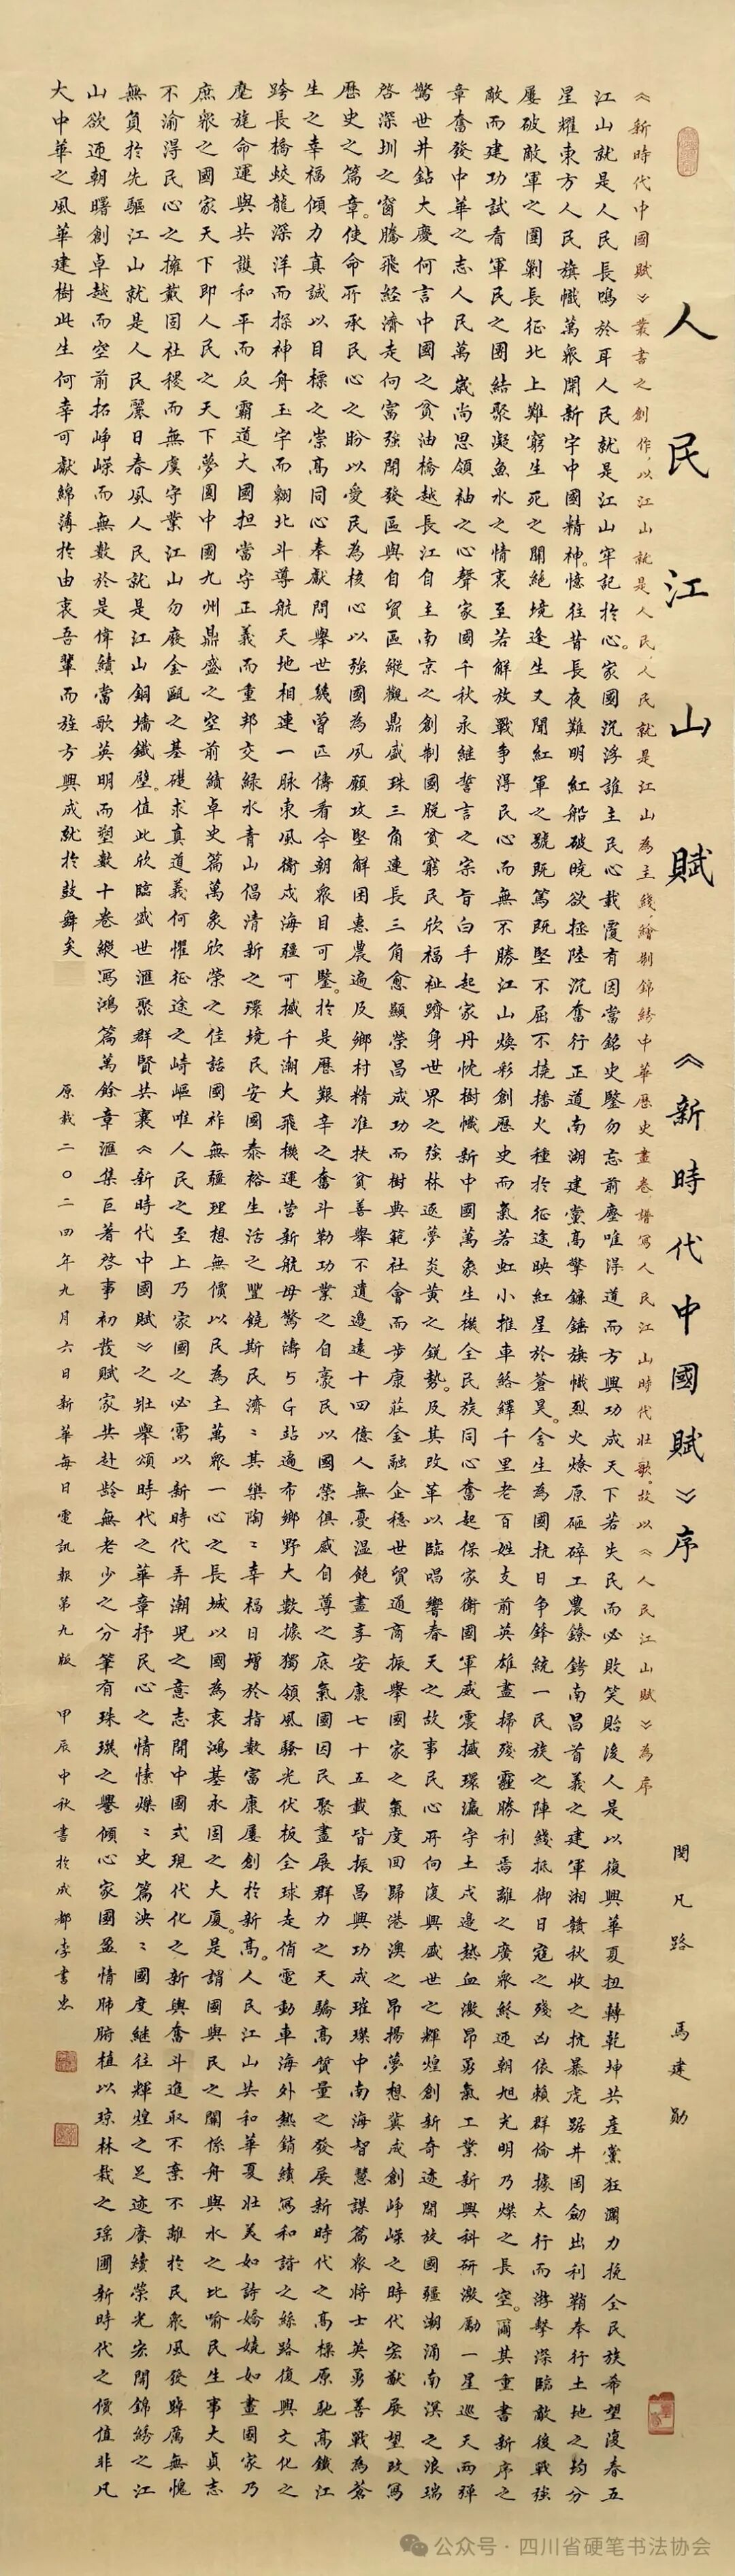 人民江山賦 《新時代中國賦》序
閔凡路 馬建勛
《新時代中國賦》叢書之創作,以江山就是人民,人民就是江山為主綫,繪制錦繡中華歷史畫卷,譜寫人民江山時代壯歌。故以《人民江山賦》為序
江山就是人民長鳴於耳人民就是江山牢記於心。家國沉浮誰主民心載覆有因當銘史鑒勿忘前塵唯得道而方興功成天下若失民而必敗笑貽後人是以復興華夏扭轉乾坤共產黨狂瀾力挽全民族希望復春五
星耀東方人民旗幟萬眾開新宇中國精神。憶往昔長夜難明紅船破曉欲拯陸沉奮行正道南湖建黨高擎鐮錘旗幟烈火燎原砸碎工農鐐銬南昌首義之建軍湘贛秋收之抗暴虎踞井岡劍出利鞘奉行土地之均分
屢破敵軍之圍剿長征北上難窮生死之關絕境逢生又聞紅軍之號既篤既堅不屈不撓播火種於征途映紅星於蒼昊。舍生為國抗日爭鋒統一民族之陣綫抵御日寇之殘凶依賴群倫據太行而游擊深臨敵後戰強
敵而建功試看軍民之團結聚凝魚水之情衷至若解放戰爭得民心而無不勝江山煥彩創歷史而氣若虹小推車絡繹千里老百姓支前英雄盡掃殘霾勝利焉離之廣眾終迎朝旭光明乃燦之長空。爾其重書新序之
章奮發中華之志人民萬歲尚思領袖之心聲家國千秋永繼誓言之宗旨白手起家丹忱樹幟新中國萬象生機全民族同心奮起保家衛國軍威震撼環瀛守土戍邊熱血激昂勇氣工業新興科研激勵一星巡天而彈
驚世井鈷大慶何言中國之貧油橋越長江自主南京之創制國脫貧窮民欣福祉躋身世界之強林逐夢炎黃之銳勢。及其改革以臨唱響春天之故事民心所向復興盛世之輝煌創新奇迹開放國疆潮涌南溟之浪瑞
啓深圳之窗騰飛經濟走向富強開發區與自貿區縱觀鼎盛珠三角連長三角愈顯榮昌成功而樹典範社會而步康莊金融企穩世貿通商振舉國家之氣度回歸港澳之昂揚夢想冀成創崢嶸之時代宏猷展望改寫
歷史之篇章。使命所承民心之盼以愛民為核心以強國為夙願攻堅解困惠農遍及鄉村精准扶貧善舉不遺邊遠十四億人無憂溫飽盡享安康七十五載皆振昌興功成璀璨中南海智慧謀篇眾將士英勇善戰為蒼
生之幸福傾力真誠以目標之崇高同心奉獻問舉世幾曾匹儔看今朝眾目可鑒。於是歷艱辛之奮斗勒功業之自豪民以國榮俱感自尊之底氣國因民聚盡展群力之天驕高質量之發展新時代之高標原馳高鐵江
跨長橋蛟龍深洋而探神舟玉宇而翱北斗導航天地相連一脉東風衛戍海疆可撼千潮大飛機運營新航母驚濤5G站遍布鄉野大數據獨領風騷光伏板全球走俏電動車海外熱銷續寫和諧之絲路復興文化之
麾旄命運與共護和平而反霸道大國担當守正義而重邦交綠水青山倡清新之環境民安國泰裕生活之豐饒斯民濟濟其樂陶陶幸福日增於指數富康屢創於新高。人民江山共和華夏壯美如詩嬌嬈如畫國家乃
庶眾之國家天下即人民之天下夢圓中國九州鼎盛之空前績卓史篇萬象欣榮之佳話國祚無疆理想無價以民為主萬眾一心之長城以國為衷鴻基永固之大廈。是謂國與民之關係舟與水之比喻民生事大貞志
不渝得民心之擁戴固社稷而無虞守業江山勿廢金甌之基礎求真道義何懼征途之崎嶇唯人民之至上乃家國之必需以新時代弄潮兒之意志開中國式現代化之新輿奮斗進取不棄不離於民眾風發踔厲無愧
無負於先驅江山就是人民麗日春風人民就是江山銅墻鐵壁。值此欣臨盛世匯聚群賢共襄《新時代中國賦》之壯舉頌時代之華章抒民心之情愫燦燦史篇泱泱國度繼往輝煌之足迹賡續榮光宏開錦綉之江
山欲迎朝曙創卓越而空前拓崢嶸而無數於是偉績當歌英明而塑數十卷縱寫鴻篇萬餘章滙集巨著啓事初發賦家共赴齡無老少之分筆有珠璣之譽傾心家國盈情肺腑植以琼林栽之瑶圃新時代之價值非凡
大中華之風華建樹此生何幸可獻綿薄於由衷吾輩而旌方興成就於鼓舞矣
原載二〇二四年九月六日新華每日電訊報第九版 甲辰中秋書於成都李書忠
公众号·四川省硬笔书法协会